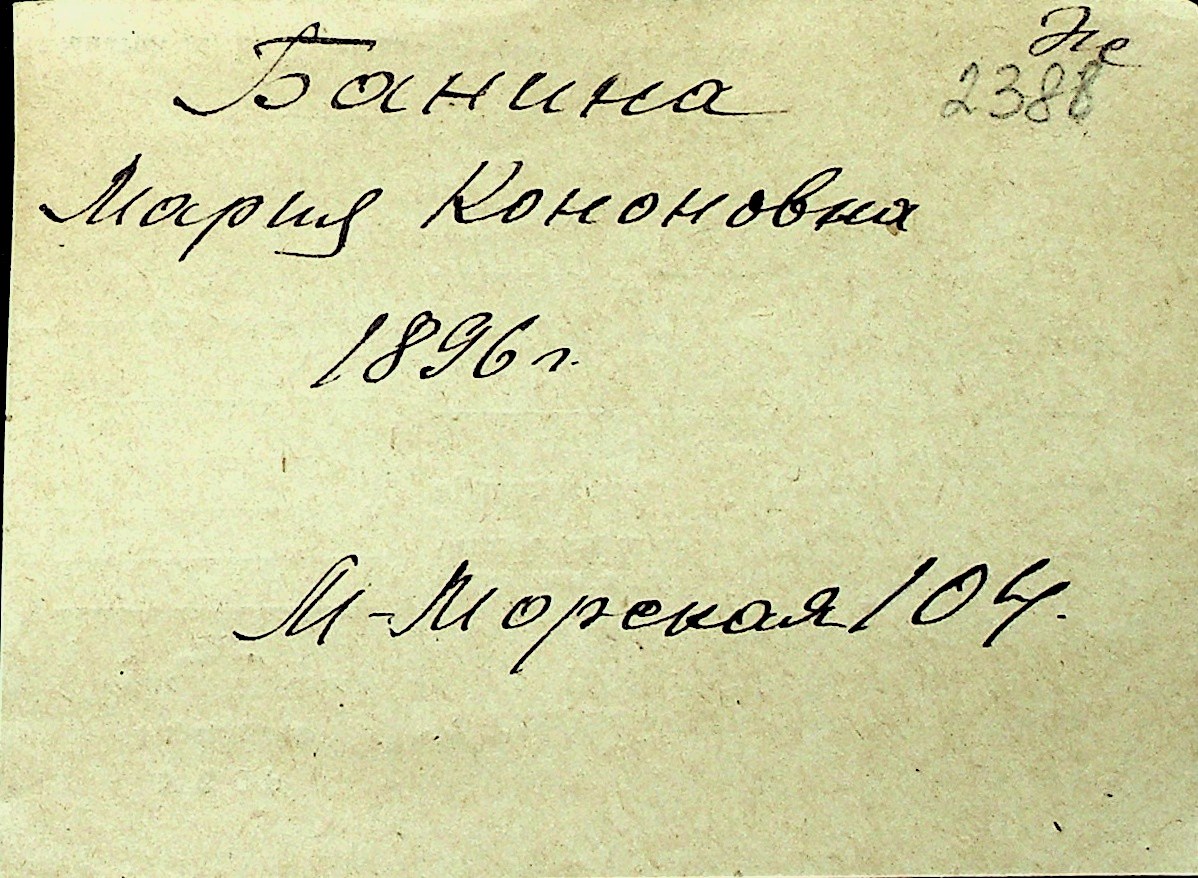 Банина
Мария Кононовна
1896 г.
М-Морская 104.